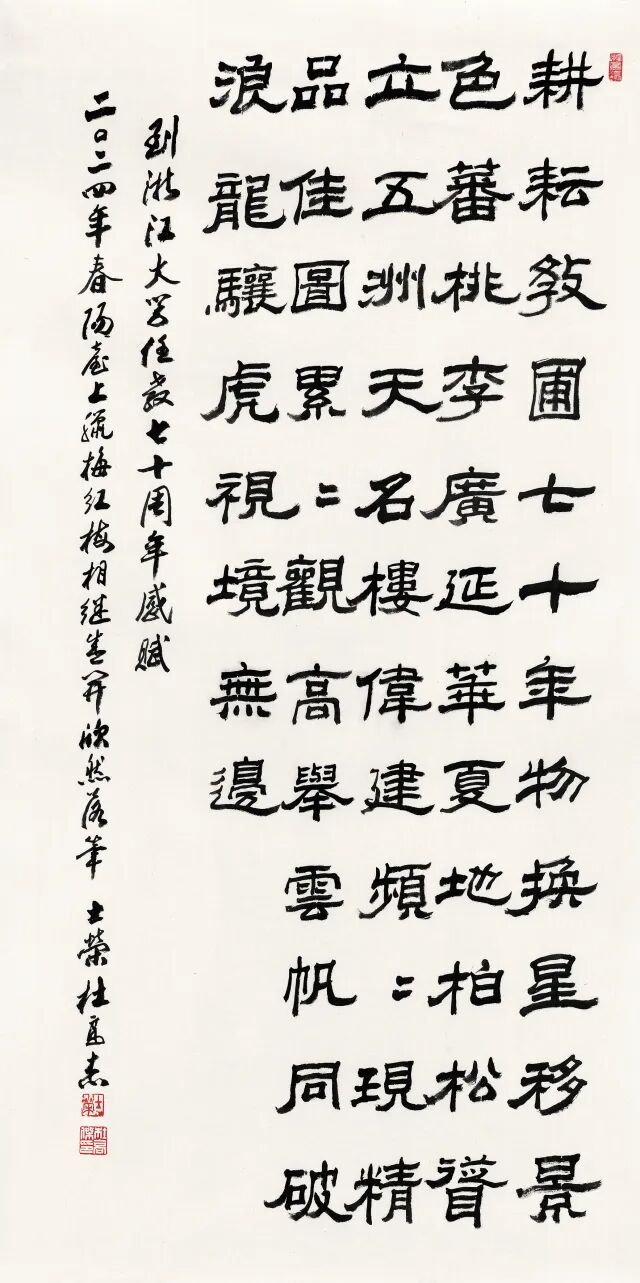 耕耘教圃七十年物換星移景
色蕃桃李廣延華夏地柏松聳
立五洲天名樓偉建頻〻現精
品佳圖累〻觀高舉雲帆同破
浪龍驤虎視境無邊
到浙江大学任教七十周年感賦
二〇二四年春陽台上臘梅红梅相继盛开欣然落筆 士榮杜高杰